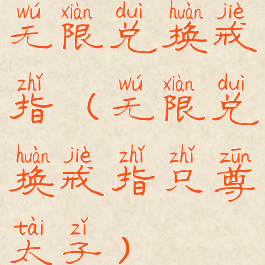 wú xiàn duì huàn jiè
无限兑换戒
zhǐ wú xiàn duì
指（无限兑
huàn jiè zhǐ zhǐ zūn
换戒指只尊
tài zǐ
太子）